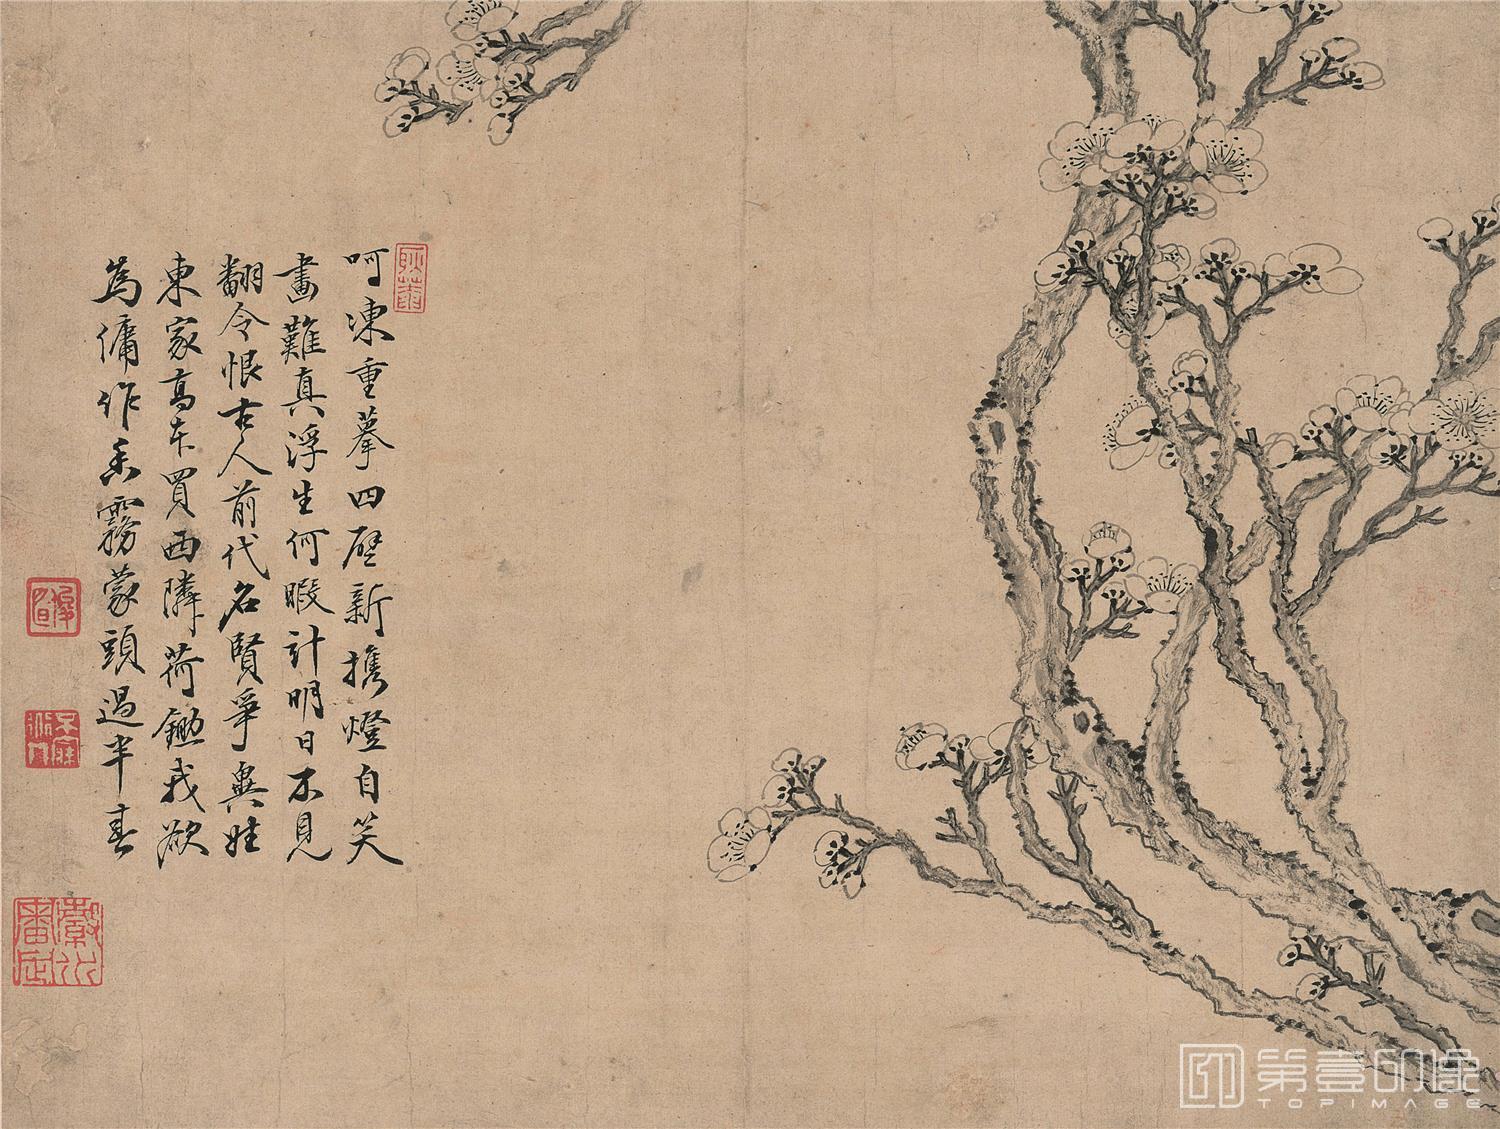 呵凍重摹四壁新攜燈自笑
畫難真浮生何暇計明日不見
翻令恨古人前代名賢爭與姓
東家高車買西隣荷鋤我欲
為傭作香霧蒙頭過半春
第壹印像
TOPIMAGE